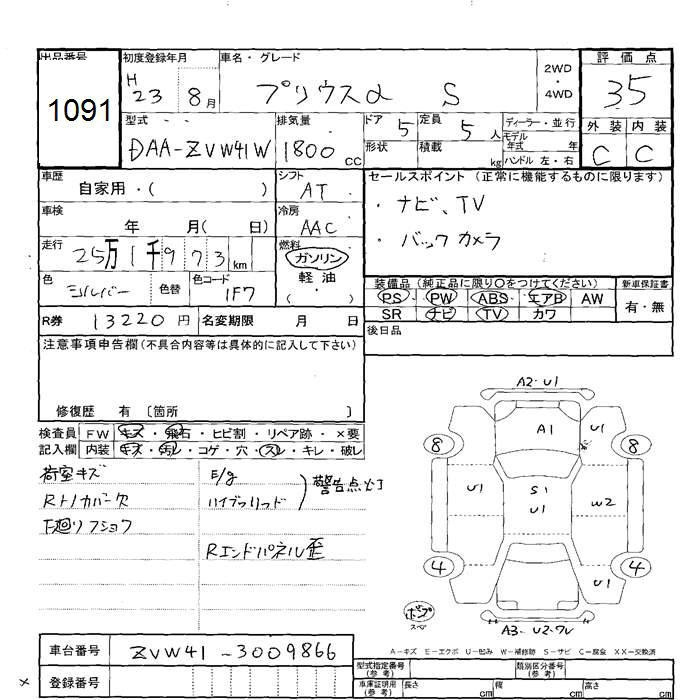 出品番号 初度登録年月 車名・グレード 2WD・4WD 評価点
1091 H23 8月 プリウスα S 35
型式 排気量 ドア 5 定員 5人 ディーラー・並行 外装 内装
DAA-ZVW41W 1800cc 形状 積載 kg モデル年式 年 ハンドル 左・右 C C
車歴 自家用・( ) シフト AT セールスポイント (正常に機能するものに限ります)
車検 年 月( 日) 冷房 AAC ・ナビ、TV
走行 25万1千973km 燃料 ガソリン ・バックカメラ
色 シルバー 色替 色コード 1F7 軽油 ( ) 装備品(純正品に限り○をつけてください) 新車保証書
PS PW ABS エアB AW 有・無
R券 13220円 名変期限 月 日 SR ナビ TV カワ
注意事項申告欄(不具合内容等は具体的に記入して下さい) 後日品
修復歴 有 〔箇所 〕
検査員 FW キズ・飛石・ヒビ割・リペア跡・×要
記入欄 内装 キズ・汚レ・コゲ・穴・スレ・キレ・破レ
荷室キズ E/g 警告点灯
Rトノカバー欠 ハイブリッド
下廻りフショク
Rエンドパネル歪
A2・U1
A1 U1
8 8
U1 S1 U1 W2
4 4
U1
A3・U2・ワレ
A-キズ E-エクボ U-凹み W-補修跡 S-サビ C-腐食 XX-交換済
車台番号 ZVW41-3009866 型式指定番号(参考) 類別区分番号(参考)
× 登録番号 車庫証明用(参考) 長さ cm 幅 cm 高さ cm